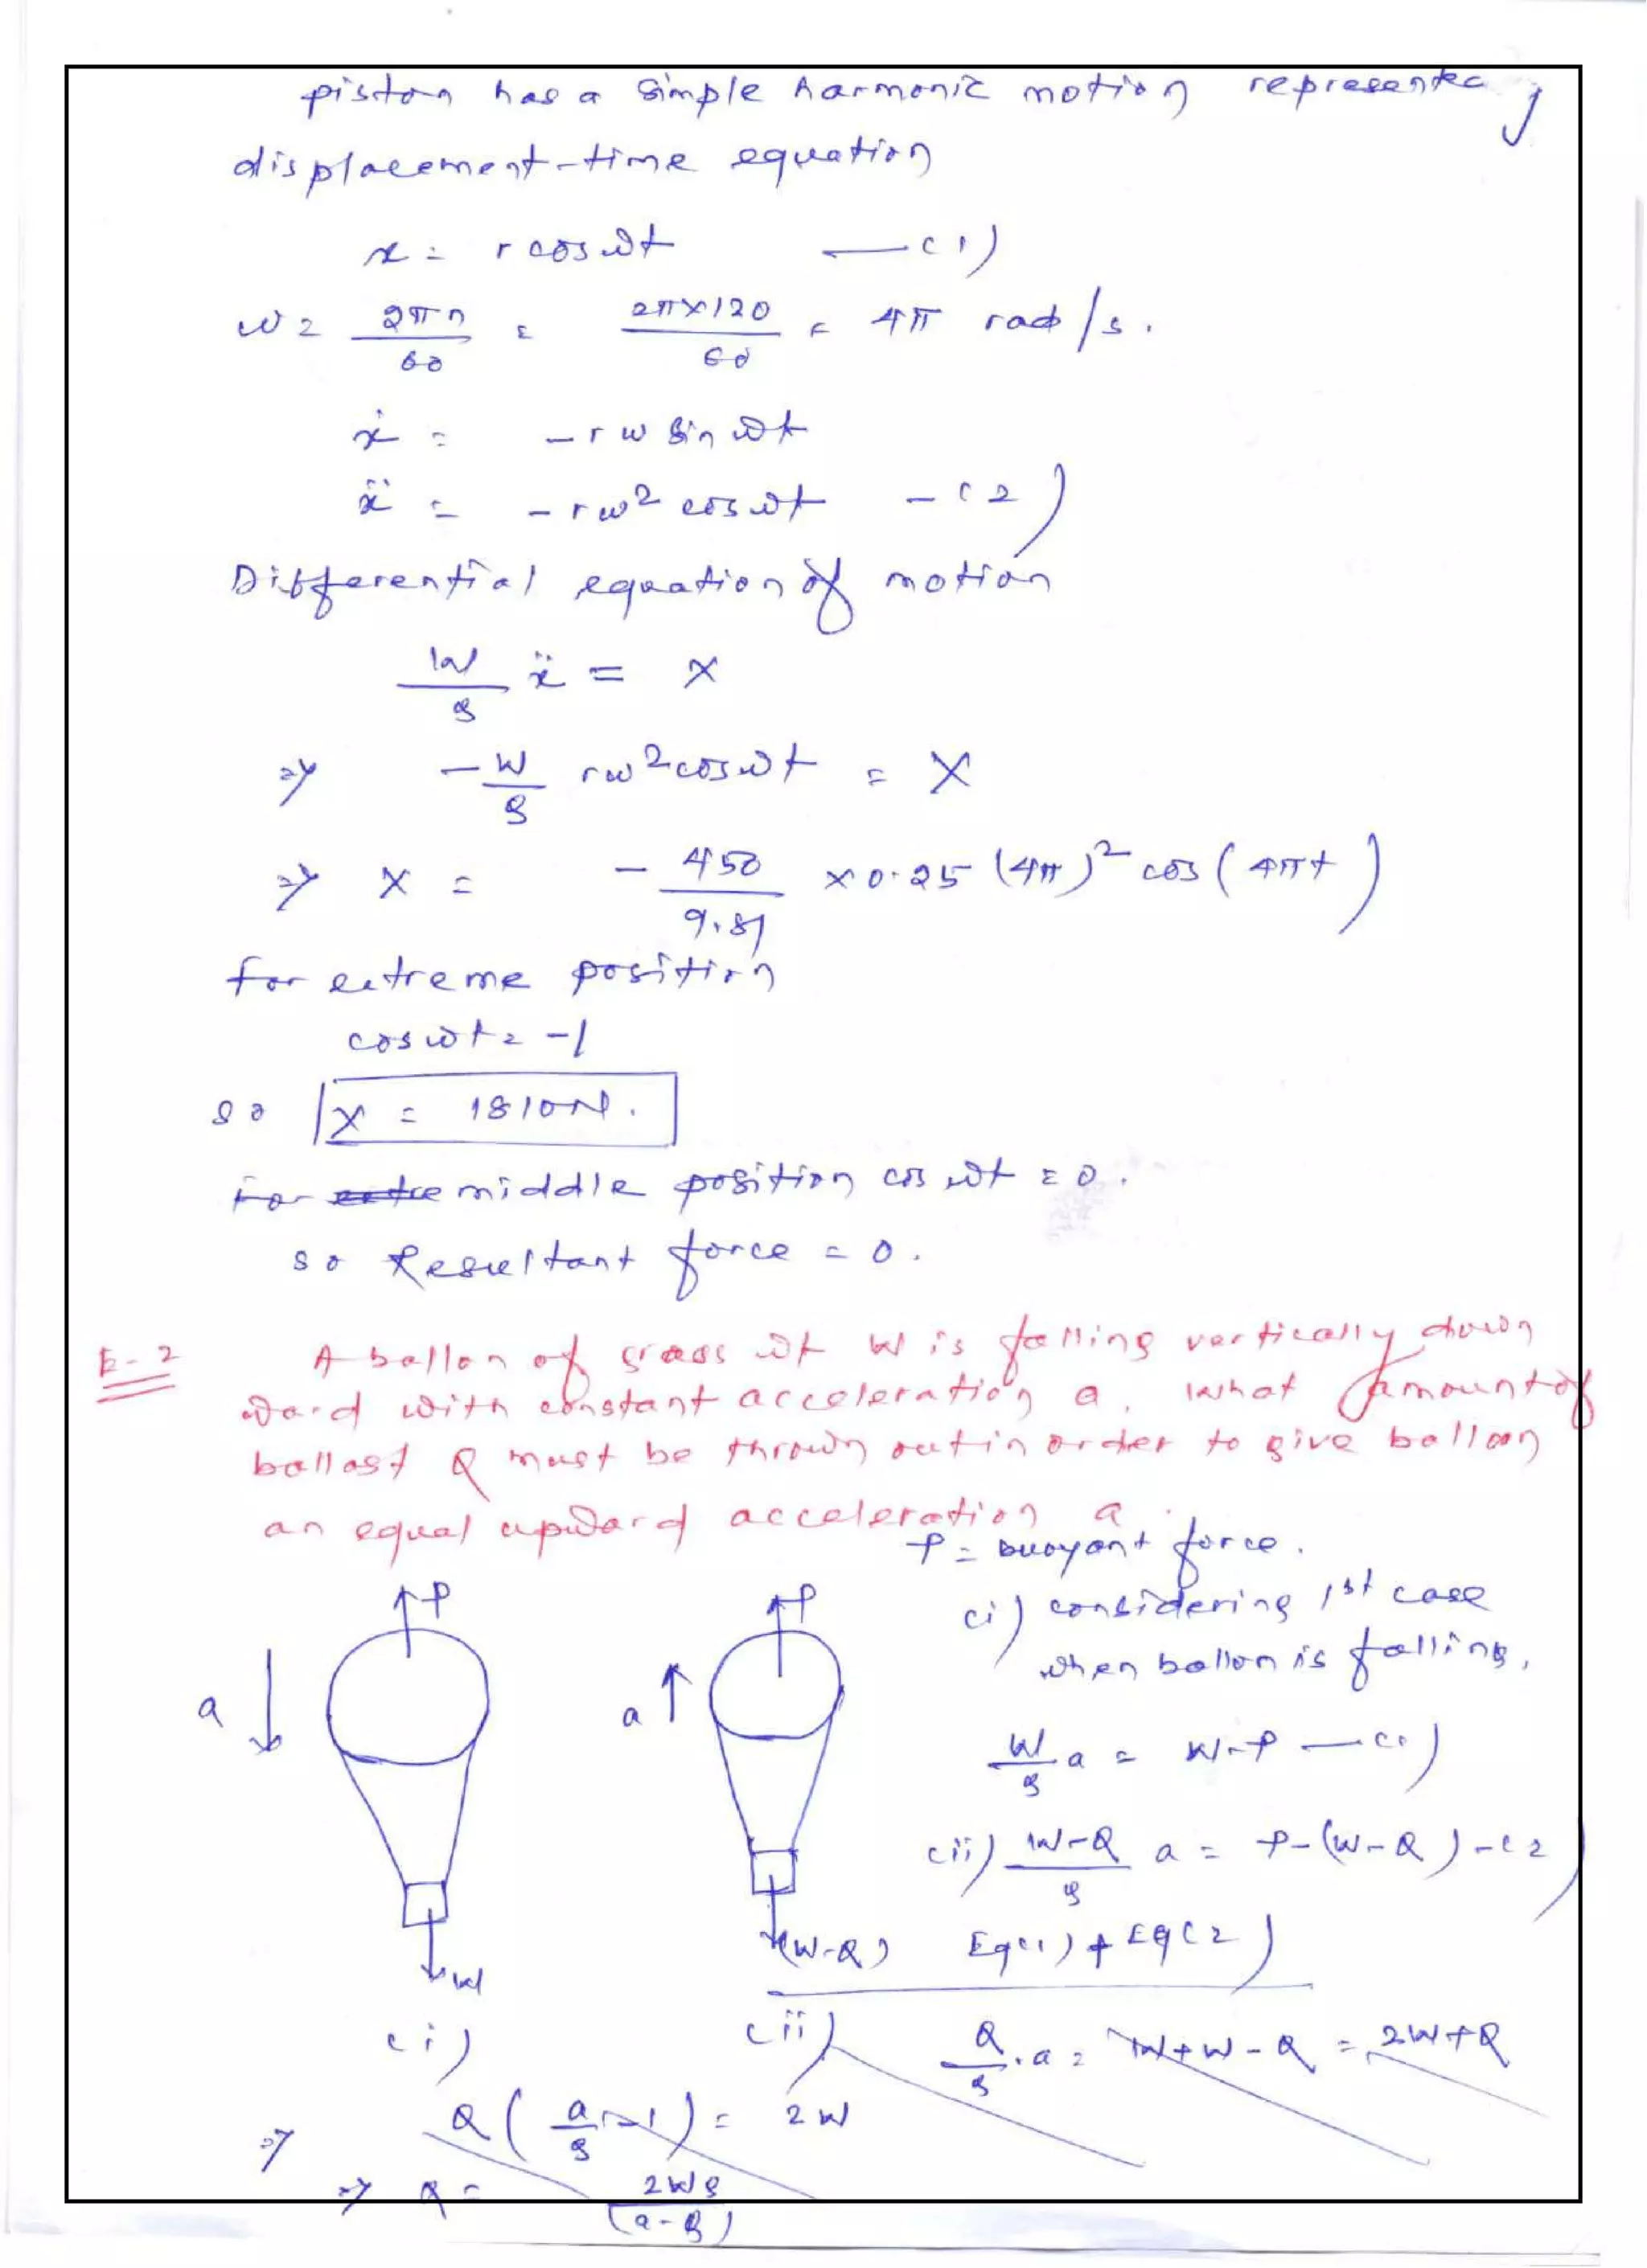 piston has a simple harmonic motion represented by
displacement-time equation
x = r cos ωt —(1)
ω = 2πn/60 = 2π×120/60 = 4π rad/s.
ẋ = -rω sin ωt
ẍ = -rω² cos ωt -(2)
Differential equation of motion
W/g ẍ = X
⇒ -W/g rω² cos ωt = X
⇒ X = - 450/9.81 × 0.25 (4π)² cos(4πt)
for extreme position
cos ωt = -1
so X = 1810N.
For middle position cos ωt = 0.
so Resultant force = 0.
E-2 A ballon of gross wt W is falling vertically down
ward with constant acceleration a. What amount of
ballast Q must be thrown out in order to give balloon
an equal upward acceleration a.
P = buoyant force.
P P (i) considering 1st case
when ballon is falling,
a a
W/g a = W-P —(1)
(ii) W-Q/g a = P-(W-Q) -(2)
W (W-Q) Eq(1) + Eq(2)
(i) (ii) Q/g . a = W+W-Q = 2W+Q
⇒ Q(a/g -1) = 2W
⇒ Q = 2Wg/(a-g)